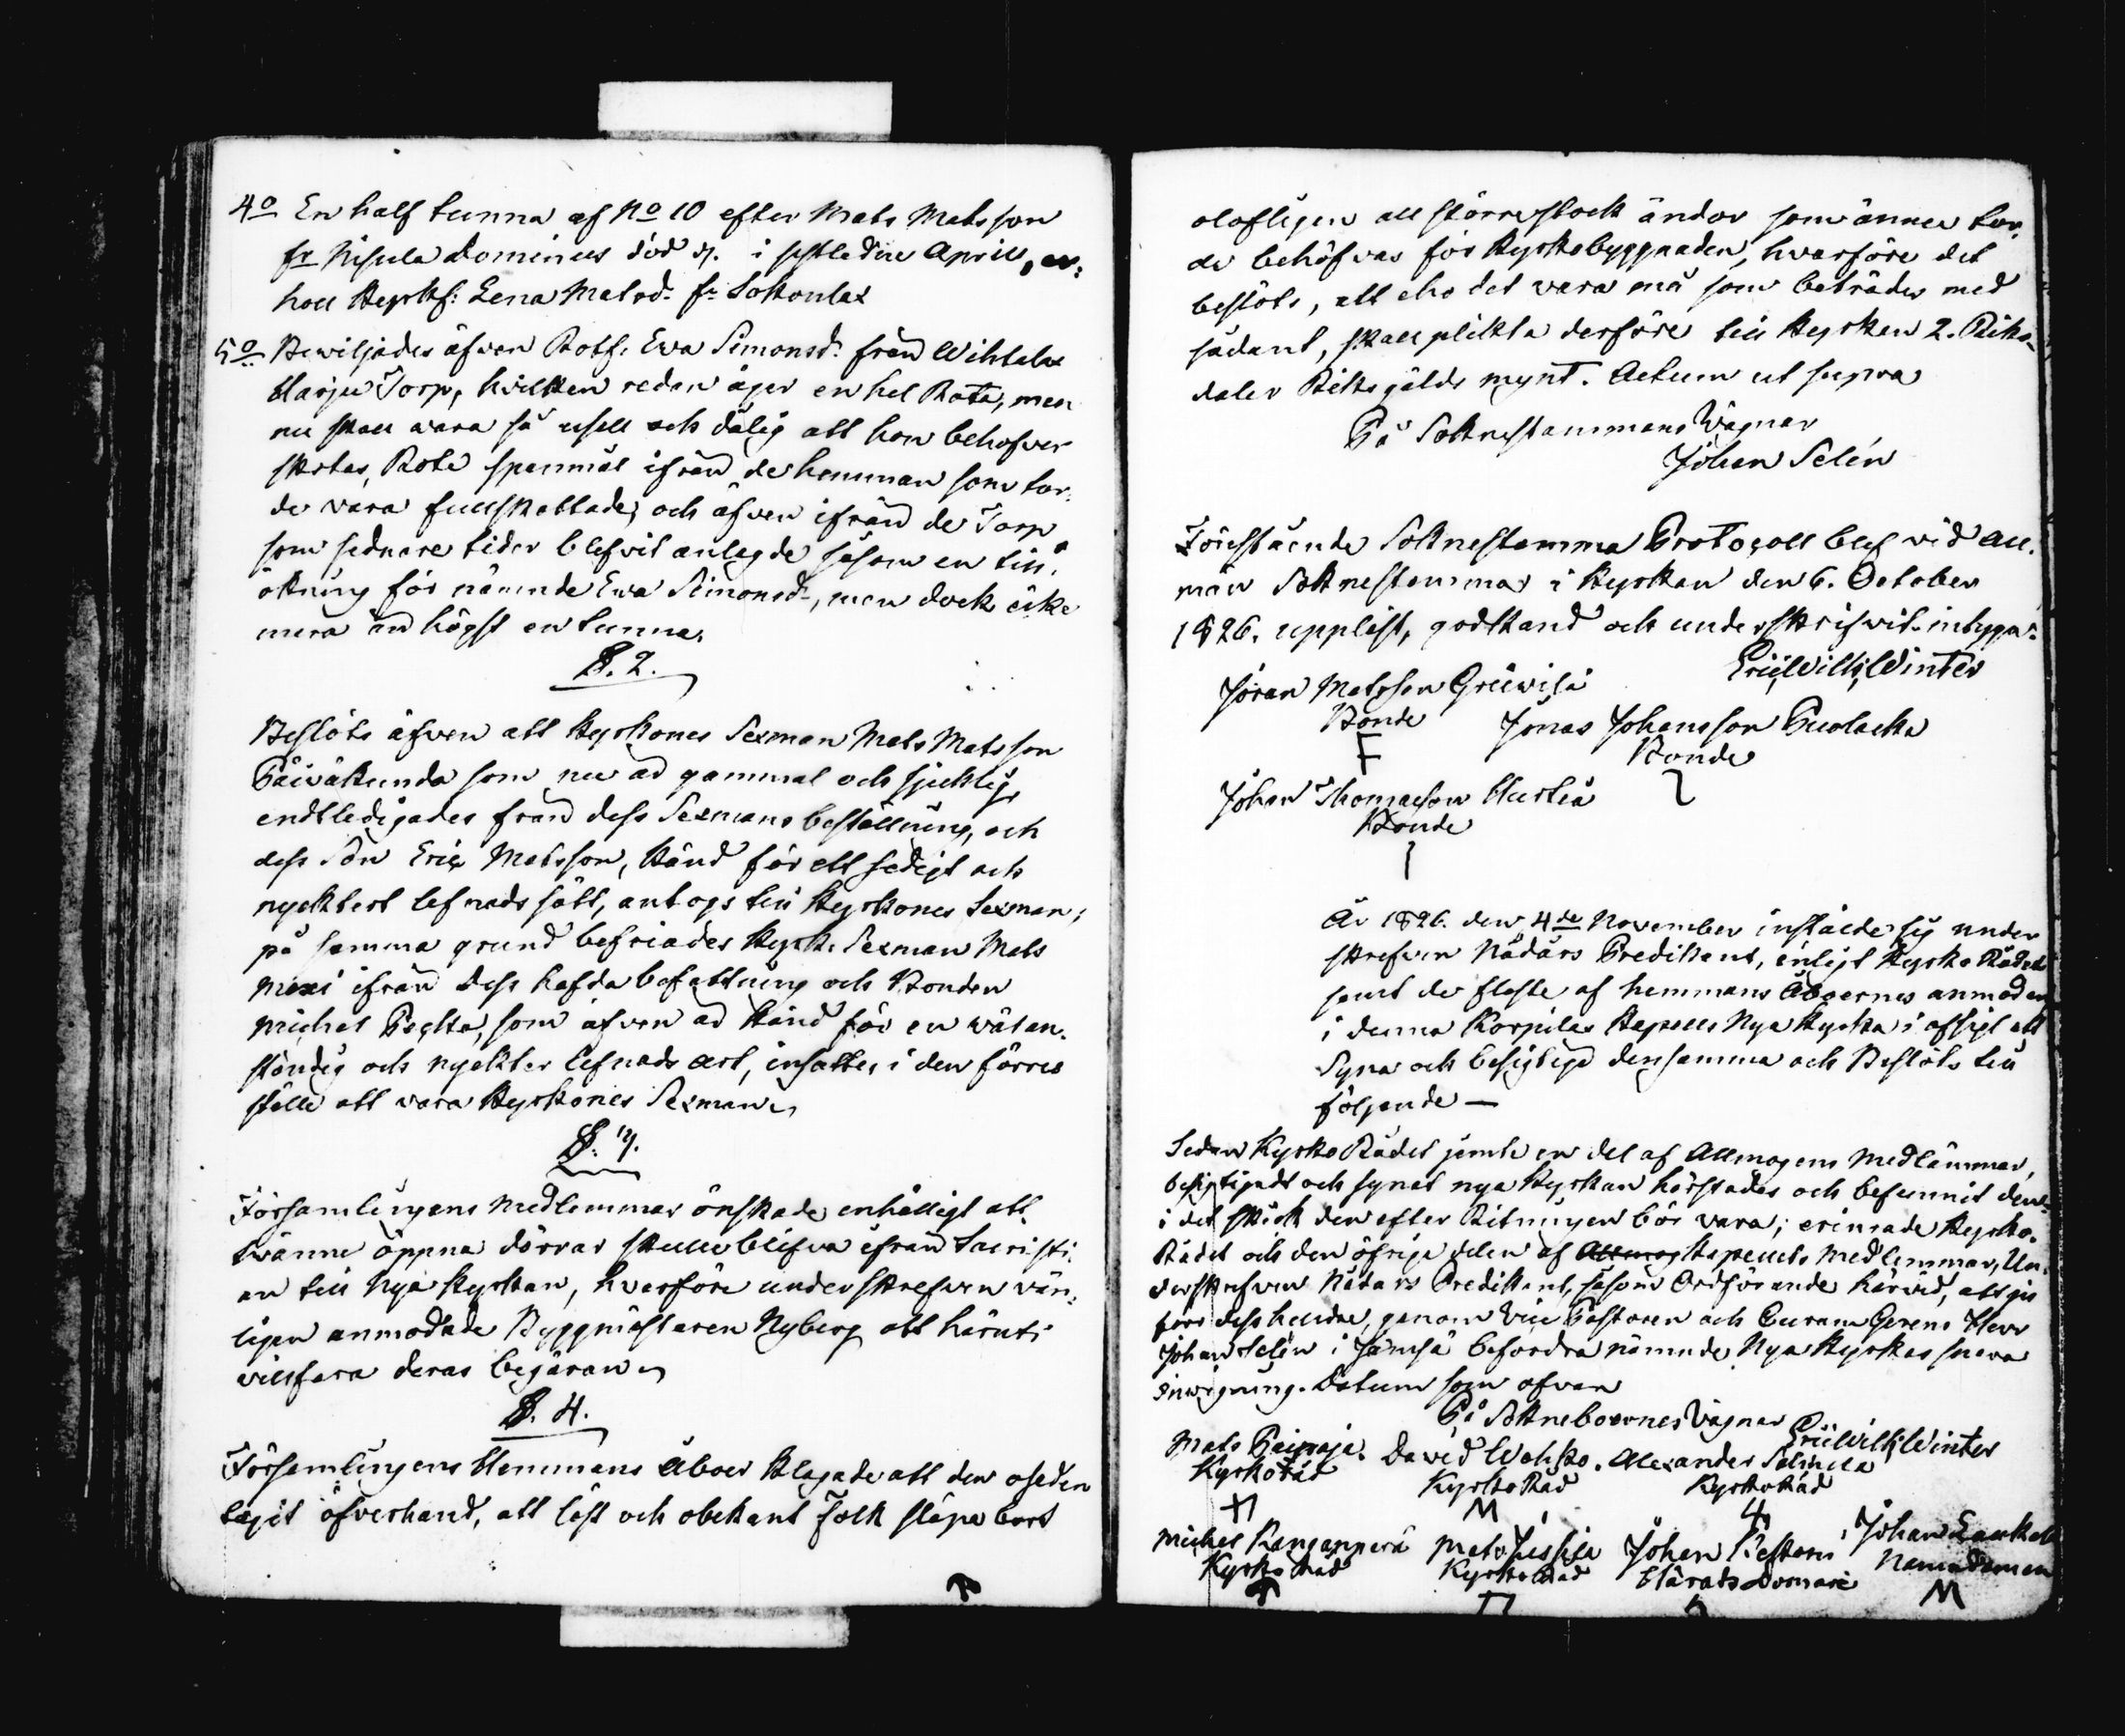 4o En half tunna af No 10 efter Mats Matsson
fr Nisula Dominus död d. i sistledne April, er-
höll Kyrkf: Lena Matsd: fr Lakonlax
5o Bewiljades äfven Rotf: Ewa Simonsd: från Wihtalax
Harju Torp, hvilken redan äger en hel Rota, men
nu skall wara så usell och dålig att hon behöfver
skötas, Rote spanmål ifrån de hemman som tor-
de vara fullskattade, och äfven ifrån de Torp
som sednare tider blefvit anlagde såsom en till-
ökning för nämnde Ewa Simonsd:, men dock icke
mera än högst en tunna.
§. 2.
Beslöts äfven att Kyrkones Sexman Mats Matsson
Päiväkunda som nu är gammal och sjuklig
endtledigades från dess Sexmans beställning, och
dess Son Eric Matsson, känd för ett sedigt och
nycktert lefnads sätt, antogs till Kyrkones Sexman;
på samma grund befriades Kyrk. Sexman Mats
Moxi ifrån dess hafda befattning och Bonden
Michel Peckta, som äfven är känd för en wälan-
ständig och nyckter lefnads art, insattes i den förres
ställe att vara Kyrkones Sexman.
§. 3.
Församlingens Medlemmar önskade enhälligt att
tvänne öppna dörrar skulle blifva ifrån Sacristi-
an till Nya Kyrkan, hvarföre underskrefven vän-
ligen anmodade Byggmästaren Nyberg att häruti
villfara deras begäran.
§. 4.
Församlingens Hemmans Åboer klagade att den oseden
tagit öfverhand, att löst och obekant Folk släpa bort
olofligen all större stock ändor som ännu tor-
de behöfvas för Kyrkobyggnaden, hvarföre det
beslöts, att eho det vara må som beträdes med
sådant, skall plikta derföre till Kyrkan 2. Riks-
daler Riksgälds mynt. Actum ut supra
På Soknestämmans Wägnar
Johan Selin
Förestående Soknestämma Protocoll blef vid all-
män Soknestämma i Kyrkan den 6. October
1826. uppläst, godkänd och underskrifwit. intygar:
Eric Wilh. Winter
Jöran Matsson Griiwilä
Bonde
Jonas Johansson Puolacka
Bonde
Johan Thomasson Hurtia
Bonde
År 1826. den 4de November instälde sig under
skrefven Nådårs Predikant, enligt Kyrko Rådets
samt de fleste af hemmans Åboernes anmodan
i denna Korpilax Kapells Nya Kyrka i afsigt att
Syna och besigtiga densamma och Beslöts till
följande —
Sedan Kyrko Rådet jemte en del af Allmogens Medlämmar,
besigtigadt och synat nya Kyrkan härstädes och befunnit den
i det skick den efter Ritningen bör vara; erinrade Kyrko-
Rådet och den öfriga delen af Kapellets Medlemmar, Un-
derskrefven Nådårs Predikant, såsom Ordförande härvid, att ju
förr dess hellre, genom Vice Pastoren och Curam Gerens Herr
Johan Selin i Jämsä befordra nämnde Nya Kyrkas snara
inwigning. Datum som ofvan
På Sokneboernes Vägnar
Eric Wilh. Winter
Mats Päiwaja. David Wehko. Alexander
Kyrko råd Kyrko Råd Kyrko Råd
Michel Kangaspera Mats Jussila Johan Johan
Kyrko Råd Kyrko Råd Härads Domare Nämndeman